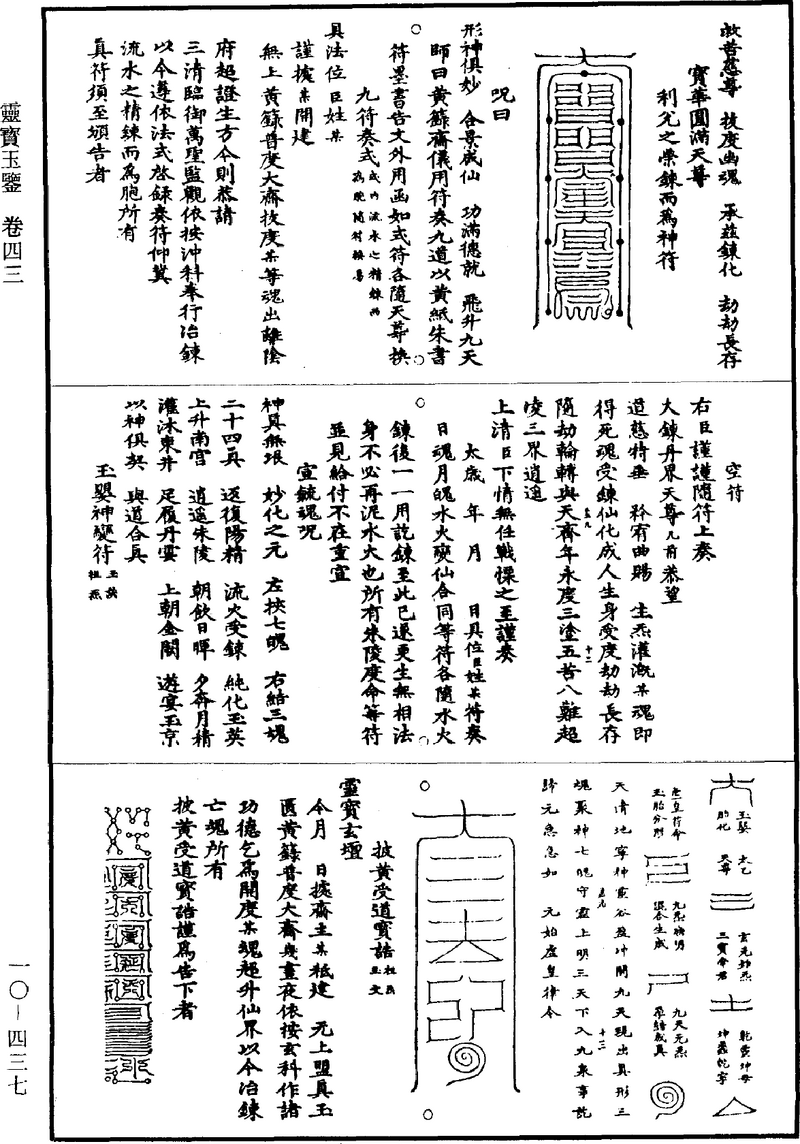 救苦慈尊　拔度幽魂　承茲鍊化　劫劫長存
寶華圓滿天尊
利允之柴鍊而為神符
呪曰
形神俱妙　合景成仙　功滿德就　飛升九天
師曰黃籙齋儀用符奏九道以黃紙朱書
符墨書告文外用函如式符各隨天尊換
九符奏式
具法位臣姓某
謹據某開建
無上黃籙普度大齋拔度某等魂出離陰
府超證生方今則恭請
三清臨御萬聖監觀依按沖科奉行冶鍊
以今遵依法式啓錄奏符仰冀
流水之精鍊而為胞所有
真符須至頒告者
空符
右臣謹謹隨符上奏
大鍊丹界天尊几前恭望
道慈特垂　矜宥曲賜　生炁灌溉某魂即
得死魂受鍊仙化成人生身受度劫劫長存
隨劫輪轉與天齊年永度三塗五苦八難超
凌三界逍遙
上清臣下情無任戰慄之至謹奏
太歲　年　月　日具位臣姓某符奏
日魂月魄水火鍊仙合同等符各隨水火
鍊後一一用訖鍊至此已遂更生無相法
身不必再泥水火也所有朱陵度命等符
並見給付不在重宣
宣毓魂呪
神真無垠　妙化之元　左挾七魄　右結三魂
二十四真　返復陽精　流火受鍊　純化玉英
上升南宮　逍遙朱陵　朝飲日暉　夕奔月精
灌沐東井　足履丹雲　上朝金闕　遊宴玉京
以神俱契　與道合真
玉嬰神變符
玉嬰　太乙　玄元始炁　乾靈坤母
胎化　天尊　三寶會君　坤靈乾寧
玉胎分形　混合生成　孕結成真
天清地寧神靈谷盈沖開九天現出真形三
魂聚神七魄守靈上明三天下入九泉事訖
歸元急急如　元始虛皇律令
披黃受道寶誥
靈寶玄壇
今月　日據齋主某祗建　无上盟真玉
匱黃籙普度大齋幾晝夜依按玄科作諸
功德乞為開度某魂超升仙界以今冶鍊
亡魂所有
披黃受道寶誥謹為告下者
靈寶玉鑒　卷四三
一〇－四三七